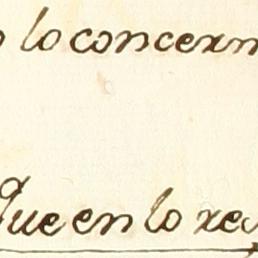 lo concern
Que en lo res